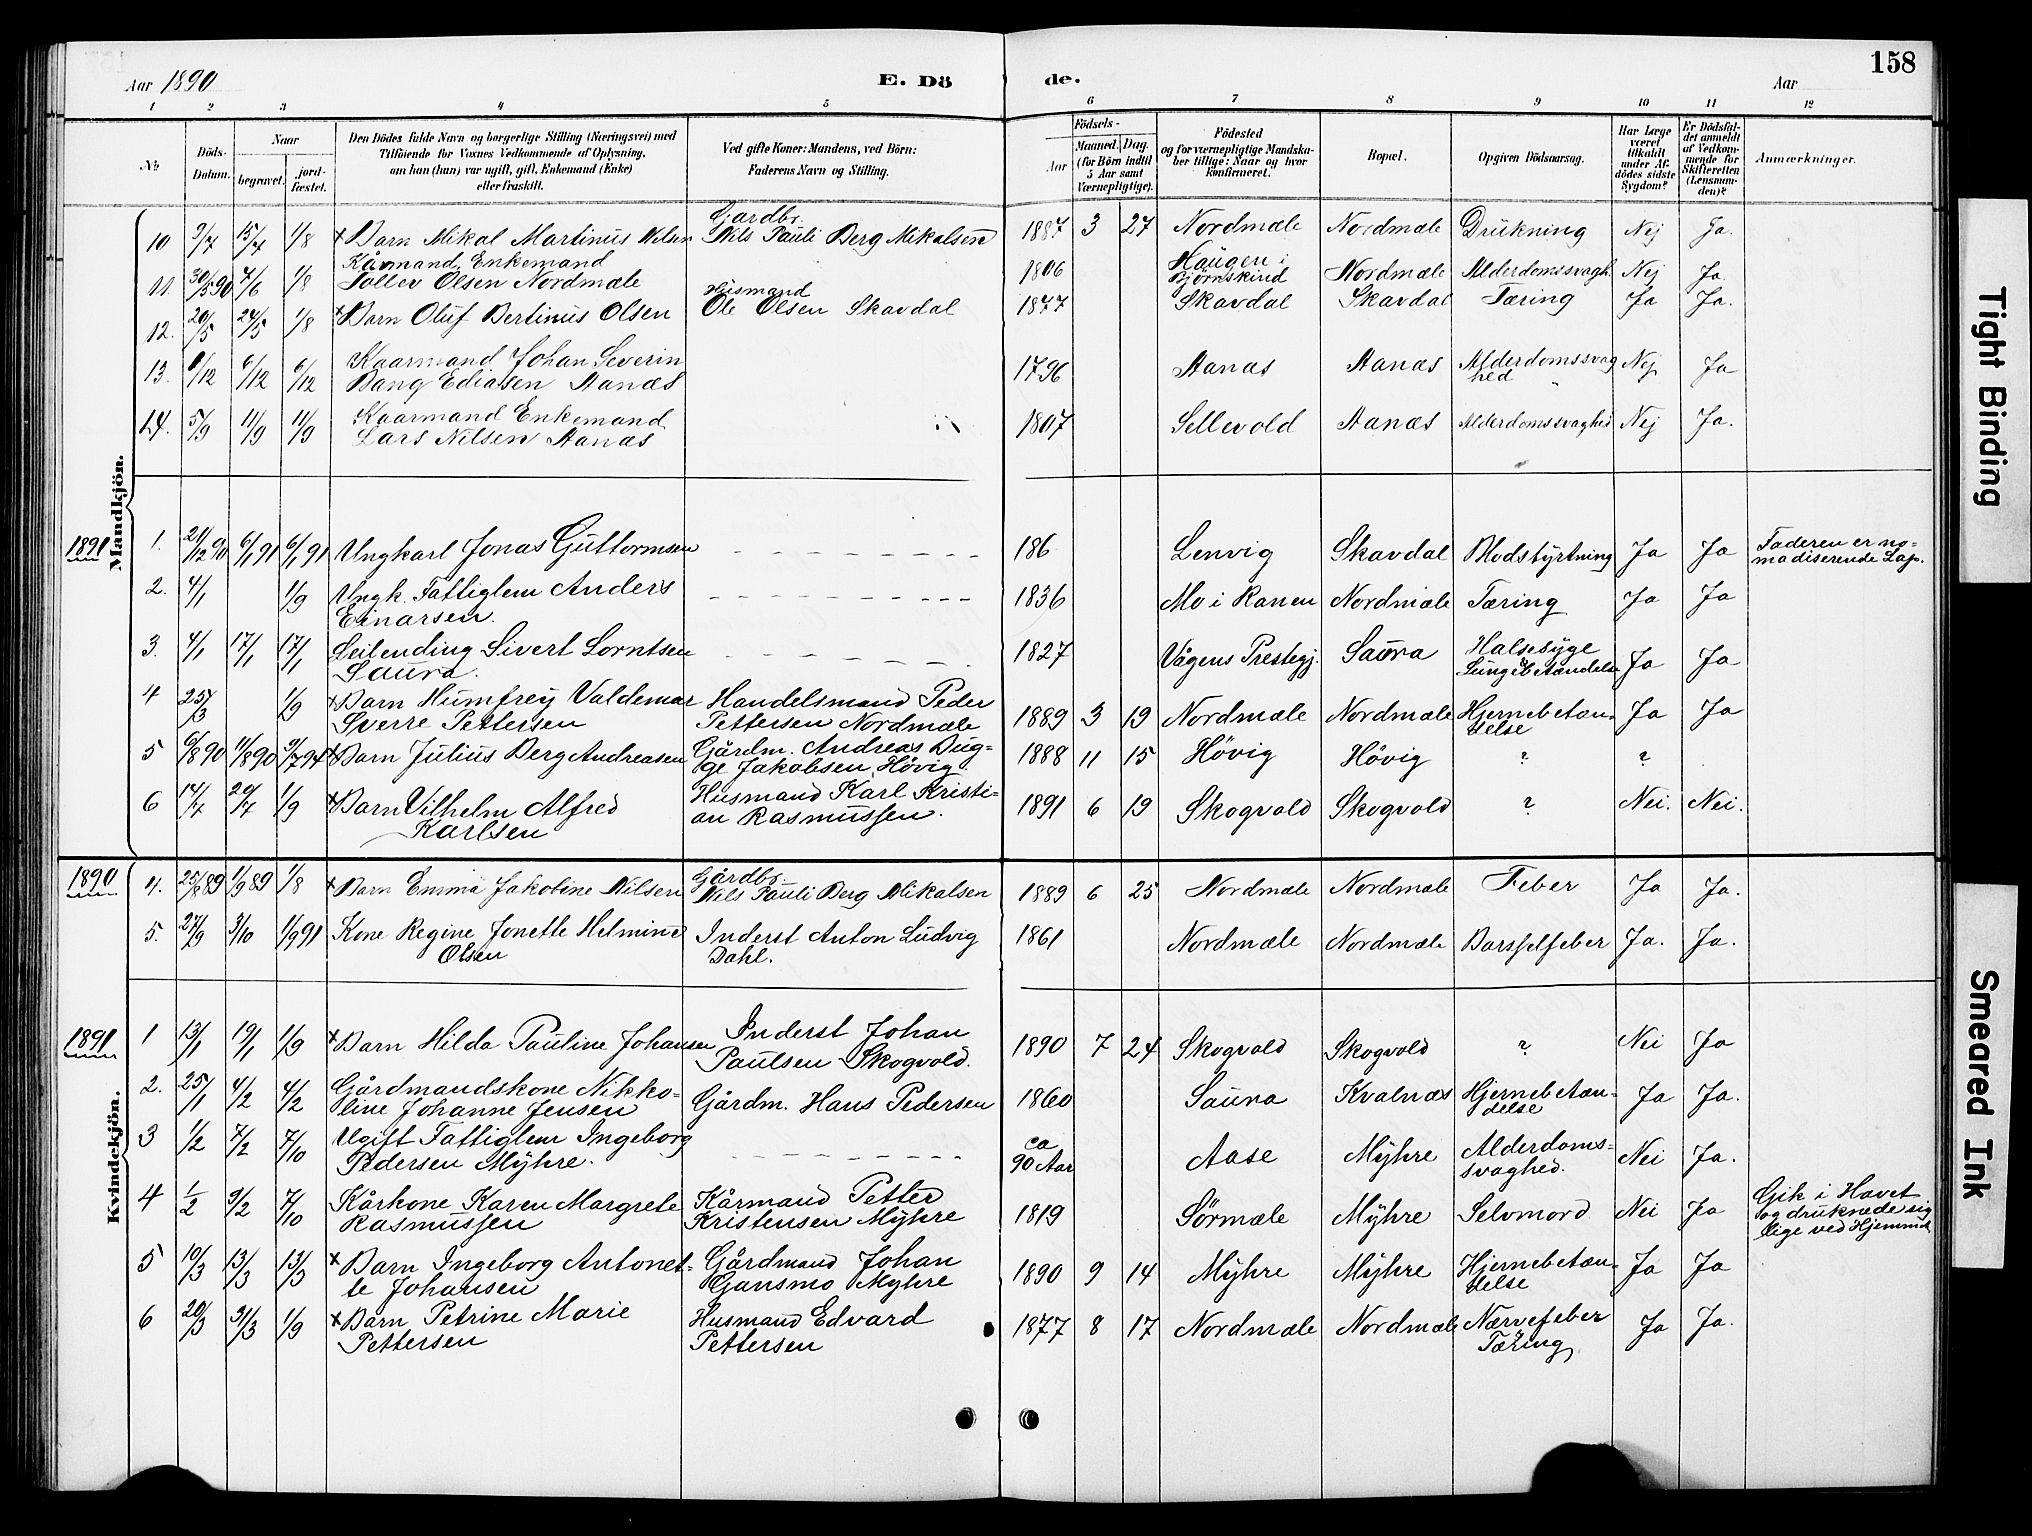 158
Aar 1890 E. Dö de. Aar
1 2 3 4 5 6 7 8 9 10 11 12
No. Döds-Datum. Naar begravet. jord-fæstet. Den Dödes fulde Navn og borgerlige Stilling (Næringsvei) med Tilföiende for Voxnes Vedkommende af Oplysning, om han (hun) var ugift, gift, Enkemand (Enke) eller fraskilt. Ved gifte Koner: Mandens, ved Börn: Faderens Navn og Stilling. Födsels- Aar Maaned. Dag. (for Börn indtil 5 Aar samt Værnepligtige). Födested og for værnepligtige Mandskaber tillige: Naar og hvor konfirmeret. Bopæl. Opgiven Dödsaarsag. Har Læge været tilkaldt under Afdödes sidste Sygdom? Er Dödsfaldet anmeldt af Vedkommende for Skifteretten (Lensmanden)? Anmærkninger.
Mandkjön.
10 9/7 15/7 1/8 + Barn Mikal Martinus Nilsen Gardbr. Nils Pauli Berg Mikalsen 1887 3 27 Nordmæle Nordmæle Drukning Nej Ja.
11. 30/5 90 7/6 1/8 Kårmand, Enkemand Tollev Olsen Nordmæle 1806 Haugen i Bjørnskind Nordmæle Alderdomssvagh. Nej Ja.
12. 20/5 24/5 1/8 + Barn Oluf Bertinus Olsen Husmand Ole Olsen Skavdal 1877 Skavdal Skavdal Tæring Ja Ja.
13. /12 6/12 6/12 Kaarmand Johan Severin Bang Ediasen Aanæs 1796 Aanæs Aanæs Alderdomssvaghed Nej Ja
14. 5/9 11/9 11/9 Kaarmand Enkemand Lars Nilsen Aanæs 1807 Sellevold Aanæs Alderdomssvaghed Nej Ja.
1891
1. 21/12 90 6/1 91 6/1 91 Ungkarl Jonas Guttormsen 186 Lenvig Skavdal Blodstyrtning Ja Ja Faderen er no=
madiserende Lap.
2. 4/1 1/9 Ungk. Fattiglem Anders Einarsen. 1836 Mo i Ranen Nordmæle Tæring Ja Ja
3. 4/1 17/1 17/1 Leilending Sivert Lorntsen Saura. 1827 Vågens Prestegj. Saura Halsesyge Ja Ja
4 25/3 1/9 + Barn Humfrey Valdemar Sverre Pettersen Handelsmand Peder Pettersen Nordmæle 1889 3 19 Nordmæle Nordmæle Hjernebetændelse Ja Ja
5 6/8 90 11/8 90 9/7 94 + Barn Julius Berg Andreasen Gårdm. Andreas Bugge Jakobsen, Høvig. 1888 11 15 Høvig Høvig ? ?
6 14/7 20/7 1/9 + Barn Vilhelm Alfred Karlsen Husmand Karl Kristian Rasmussen. 1891 6 19 Skogvold Skogvold ? Nei. Nei.
1890
Kvindekjön.
4. 25/8 89 1/9 89 1/8 + Barn Emma Jakobine Nilsen Gårdbr. Nils Pauli Berg Mikalsen 1889 6 25 Nordmæle Nordmæle Feber Ja Ja.
5. 27/9 3/10 1/9 91 Kone Regine Jonette Helmine Olsen Inderst Anton Ludvig Dahl. 1861 Nordmæle Nordmæle Barselfeber Ja. Ja.
1891
1 13/1 19/1 1/9 + Barn Hilda Pauline Johansen Inderst Johan Paulsen Skogvold. 1890 7 24 Skogvold Skogvold ? Nei Ja
2. 25/1 4/2 4/2 Gårdmandskone Nikkoline Johanne Jensen Gårdm. Hans Pedersen 1860 Saura Kvalnæs Hjernebetændelse Ja Ja.
3 1/2 7/2 7/10 Ugift Fattiglem Ingeborg Pedersen Myhre. ca 90 Aar Aase Myhre Alderdomssvaghed. Nei Ja.
4 1/2 9/2 7/10 Kårkone Karen Margrete Rasmussen Kårmand Petter Kristensen Myhre 1819 Sørmæle Myhre Selvmord Nei Ja Gik i Havet
og druknede sig
lige ved Hjemmet
5 10/3 13/3 13/3 + Barn Ingeborg Antonette Johansen Gårdmand Johan Gansmo Myhre 1890 9 14 Myhre Myhre Hjernebetændelse Ja Ja
6 20/3 31/3 1/9 + Barn Petrine Marie Pettersen Husmand Edvard Pettersen 1877 8 17 Nordmæle Nordmæle Nærvefeber Tæring Ja Ja.
Tight Binding
Smeared Ink